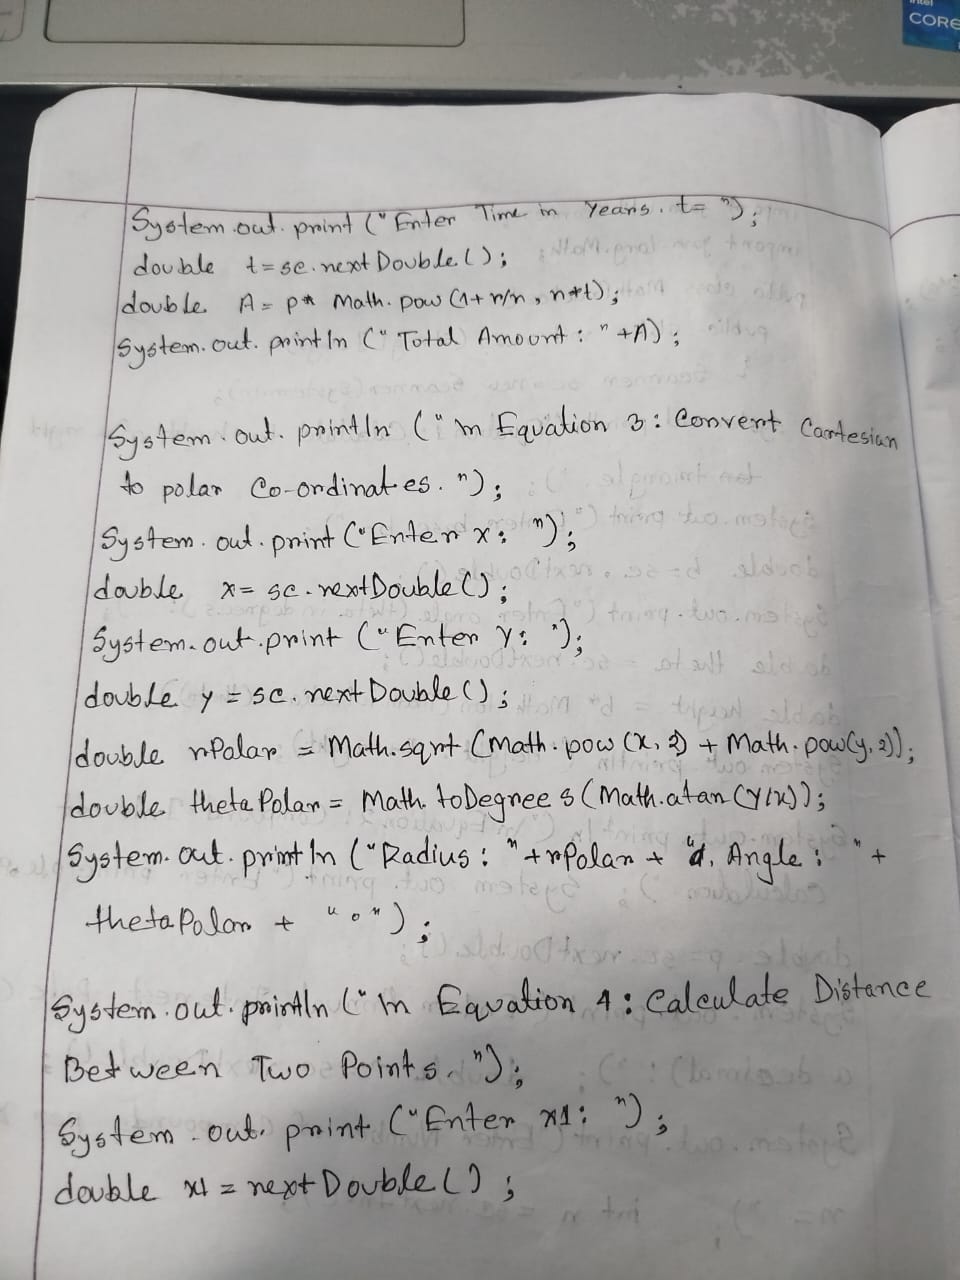 CORE
System.out.print ("Enter Time in Years. t= ");
double t=sc.nextDouble();
double A = p* Math.pow(1+r/n, n*t);
System.out.println (" Total Amount : "+A);
System.out.println ("\n Equation 3: Convert Cartesian
to polar Co-ordinates.");
System.out.print ("Enter x: ");
double x= sc.nextDouble();
System.out.print ("Enter y: ");
double y = sc.nextDouble();
double rPolar = Math.sqrt(Math.pow(x,2) + Math.pow(y,2));
double thetaPolar = Math.toDegrees(Math.atan(y/x));
System.out.println ("Radius: "+rPolar+ " , Angle: "+
thetaPolar + "°");
System.out.println ("\n Equation 4: Calculate Distance
Between Two Points.");
System.out.print ("Enter x1: ");
double x1 = nextDouble();